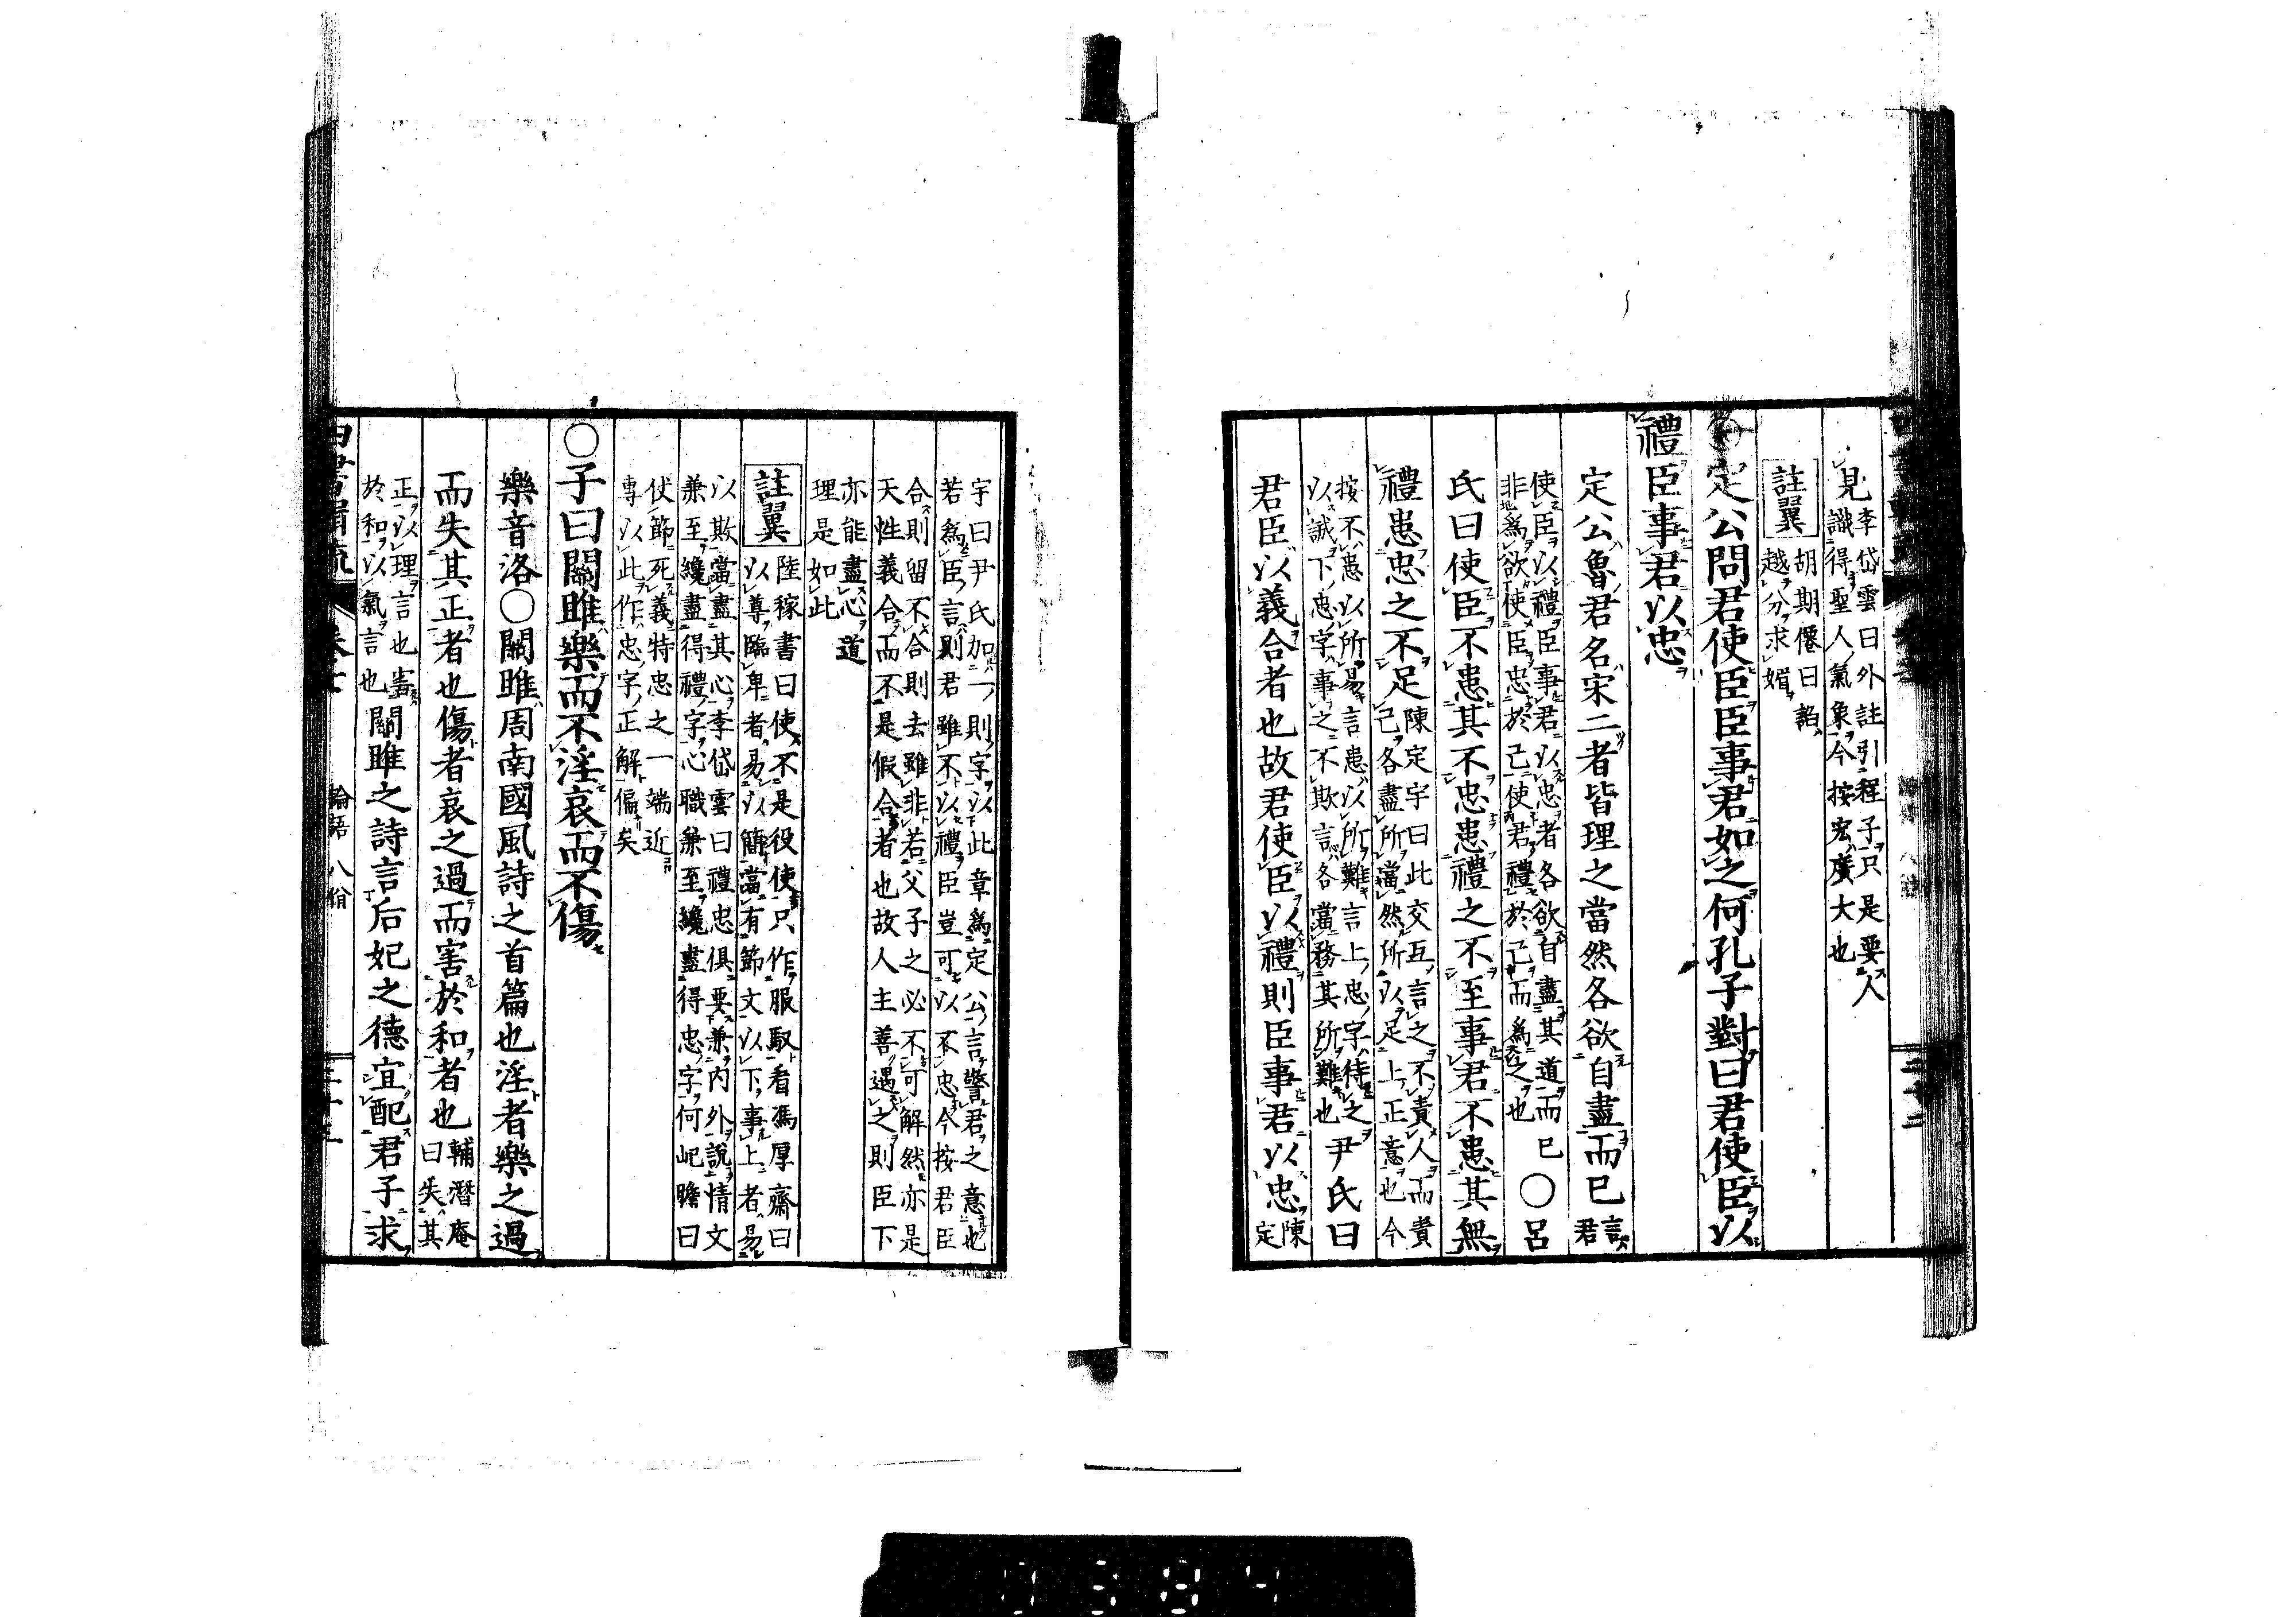 見
李岱雲曰外註引程子只是要人
識得聖人氣象今按宏廣大也
註翼
胡期僊曰諂
越分求媚
定公問君使臣臣事君如之何孔子對曰君使臣以
禮臣事君以忠
定公魯君名宋二者皆理之當然各欲自盡而已
言
君
使臣以禮臣事君以忠者各欲自盡其道而已
非為欲使臣忠於己使君禮於己而為之也
○呂
氏曰使臣不患其不忠患禮之不至事君不患其無
禮患忠之不足
陳定宇曰此交互言之不責人而責
己各盡所當然所以足上正意也今
按不患以所易言患以所難言上忠字待之
以誠下忠字事之不欺言各當務其所難也
尹氏曰
君臣以義合者也故君使臣以禮則臣事君以忠
陳
定
宇曰尹氏加一則字以此章為定公言警君之意也
若為臣言則君雖不以禮臣豈可以不忠今按君臣
合則留不合則去雖非若父子之必不可解然亦是
天性義合而不是假合者也故人主善遇之則臣下
亦能盡心道
理是如此
註翼
陸稼書曰使不是役使只作服馭看馮厚齋曰
以尊臨卑者易以簡當有節文以下事上者易
以欺當盡其心李岱雲曰禮忠俱要兼內外說情文
兼至纔盡得禮字心職兼至纔盡得忠字何屺瞻曰
伏節死義特忠之一端近
專以此作忠字正解偏矣
○子曰關雎樂而不淫哀而不傷
樂音洛○關雎周南國風詩之首篇也淫者樂之過
而失其正者也傷者哀之過而害於和者也
輔潛庵
曰失其
正以理言也害
於和以氣言也
關雎之詩言后妃之德宜配君子求
論語 八佾